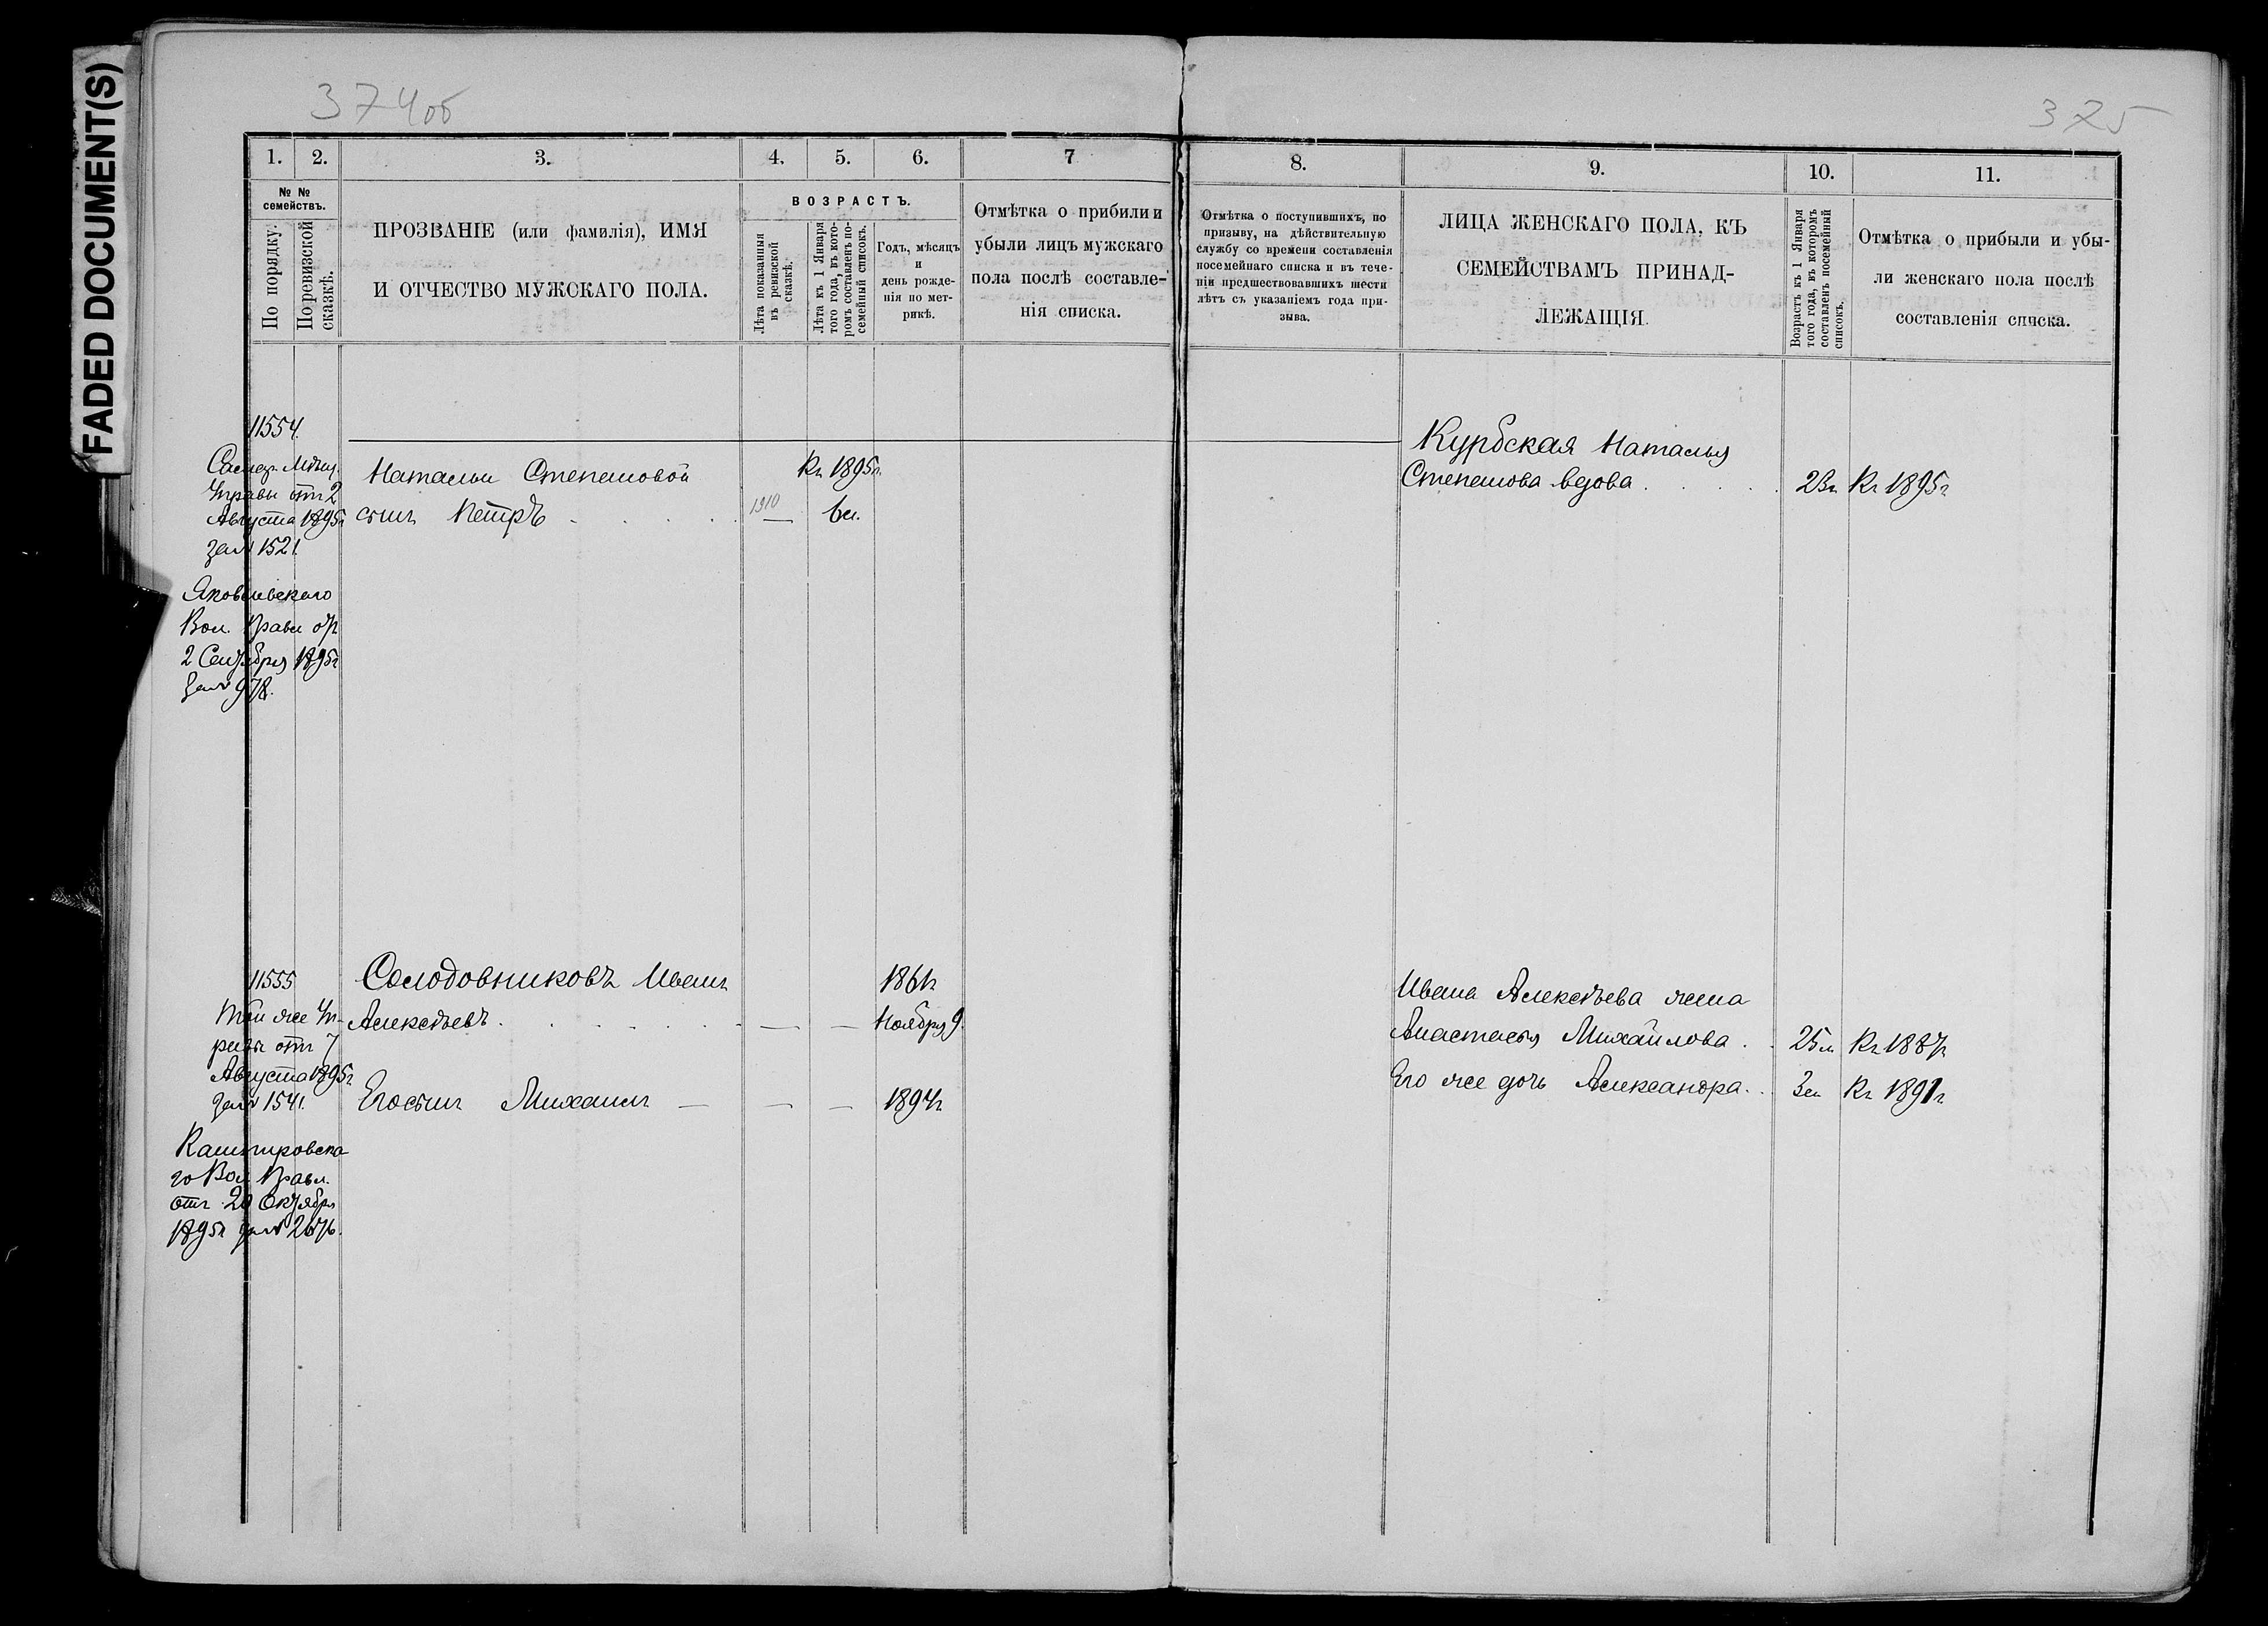 FADED DOCUMENT(S)
374об
375
1. 2. 3. 4. 5. 6. 7
8. 9. 10. 11.
№ №
семействъ.
По порядку.
По ревизской
сказкѣ.
ПРОЗВАНІЕ (или фамилія), ИМЯ
И ОТЧЕСТВО МУЖСКАГО ПОЛА.
ВОЗРАСТЪ.
Лѣта показанныя
въ ревизской
сказкѣ.
Лѣта къ 1 Января
того года, въ кото-
ромъ составленъ по-
семейный списокъ.
Годъ, мѣсяцъ
и
день рожде-
нія по мет-
рикѣ.
Отмѣтка о прибили и
убыли лицъ мужскаго
пола послѣ составле-
нія списка.
Отмѣтка о поступившихъ, по
призыву, на дѣйствительную
службу со времени составленія
посемейнаго списка и въ тече-
ніи предшествовавшихъ шести
лѣтъ съ указаніемъ года при-
зыва.
ЛИЦА ЖЕНСКАГО ПОЛА, КЪ
СЕМЕЙСТВАМЪ ПРИНАД-
ЛЕЖАЩІЯ.
Возрастъ къ 1 Января
того года, въ которомъ
составленъ посемейный
списокъ.
Отмѣтка о прибыли и убы-
ли женскаго пола послѣ
составленія списка.
11554.
Самар. Мѣщ.
Управы отъ 2
Августа 1895г
за № 1521.
Яковлевскаго
Вол. Правл от
2 Сентября 1895г
за № 978.
Натальи Степановой
сынъ Петръ
1910
Къ 1895г.
6 л.
Курбская Наталья
Степанова вдова 23г Къ 1895г
11555
Той же Уп-
равы отъ 7
Августа 1895г
за № 1541.
Кашпировска
го Вол. Правл.
отъ 20 Октября
1895г за №
Солодовниковъ Иванъ 1861г
Алексѣевъ — — Ноября 9
Его сынъ Михаилъ — — — 1894г
Ивана Алексѣева жена
Анастасья Михайлова 25 л Къ 1887г
Его же дочь Александра 3 л Къ 1891г